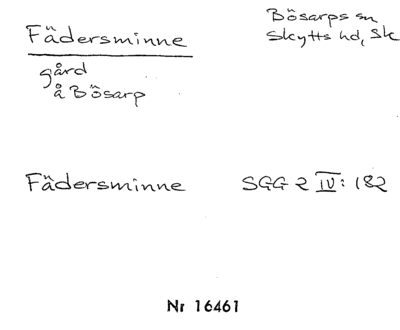 Fädersminne
Bösarps sn
Skytts hd, Sk
gård
å Bösarp
Fädersminne SGG 2 IV: 182
Nr 16461